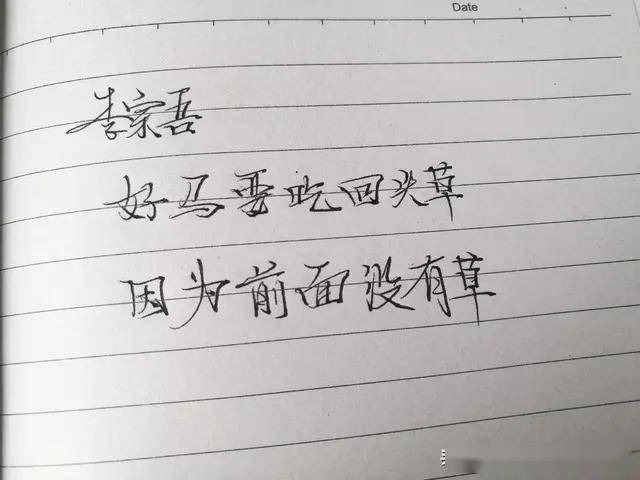 Date
李宗吾
好马要吃回头草
因为前面没有草